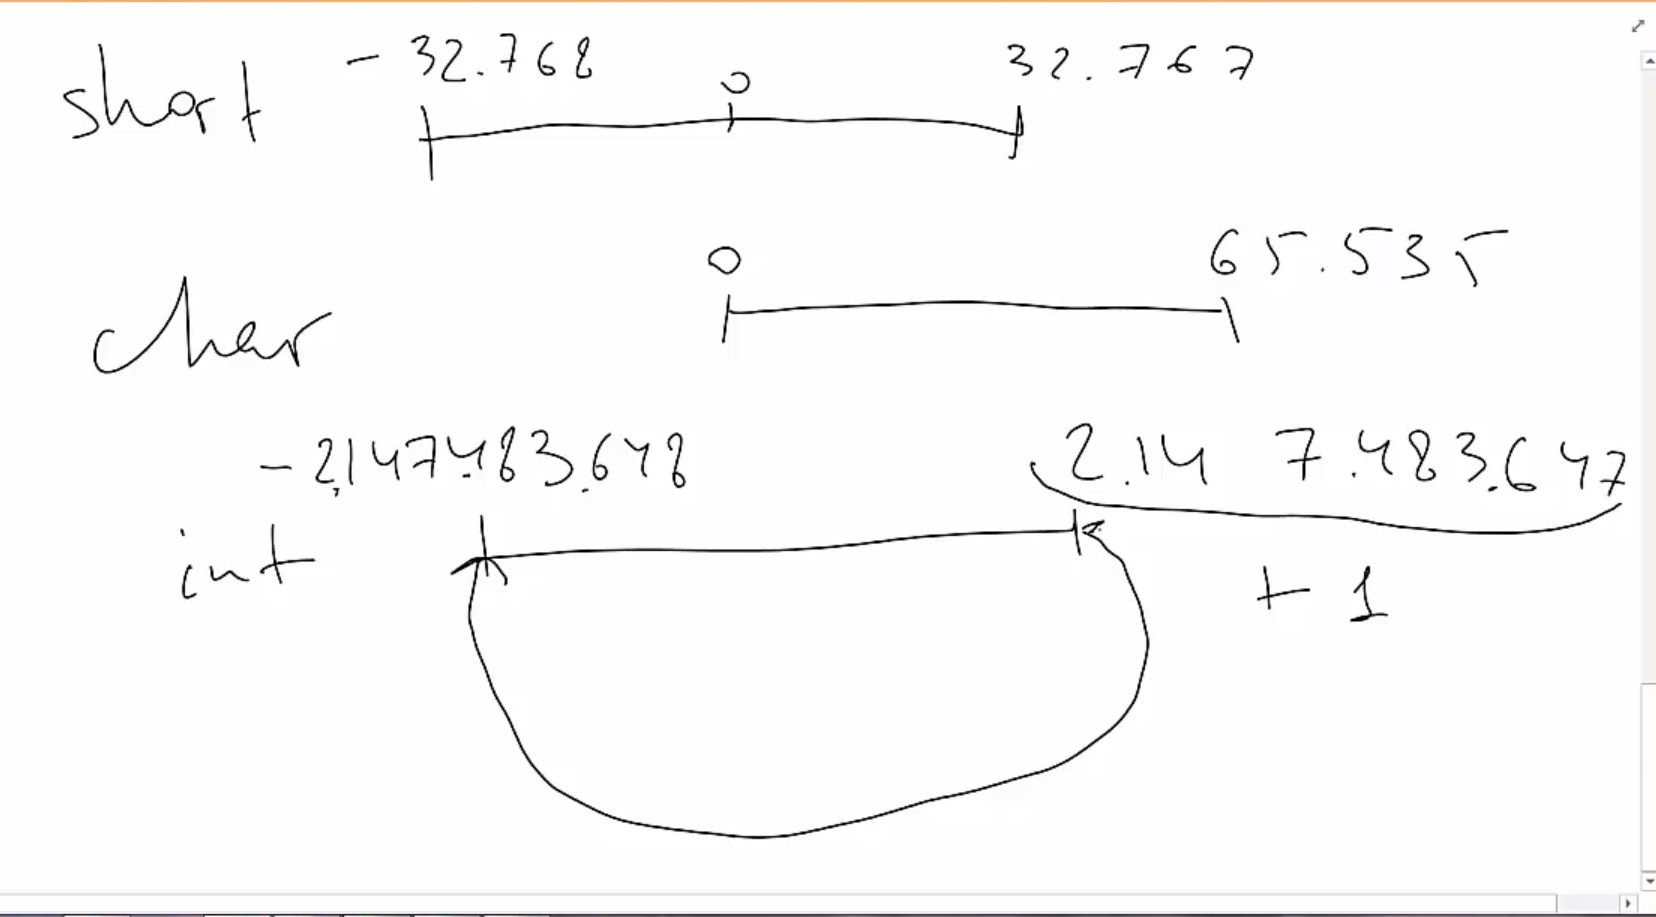 short - 32.768 0 32.767
0 65.535
char
- 2.147.483.648 2.14 7.483.647
int
+ 1